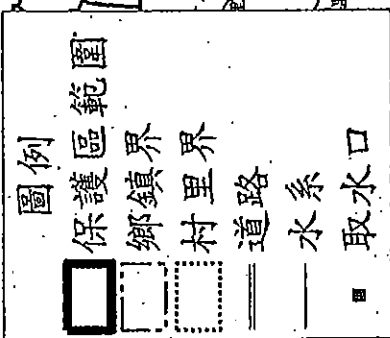 圖例
保護區範圍
鄉鎮界
村里界
道路
水系
取水口